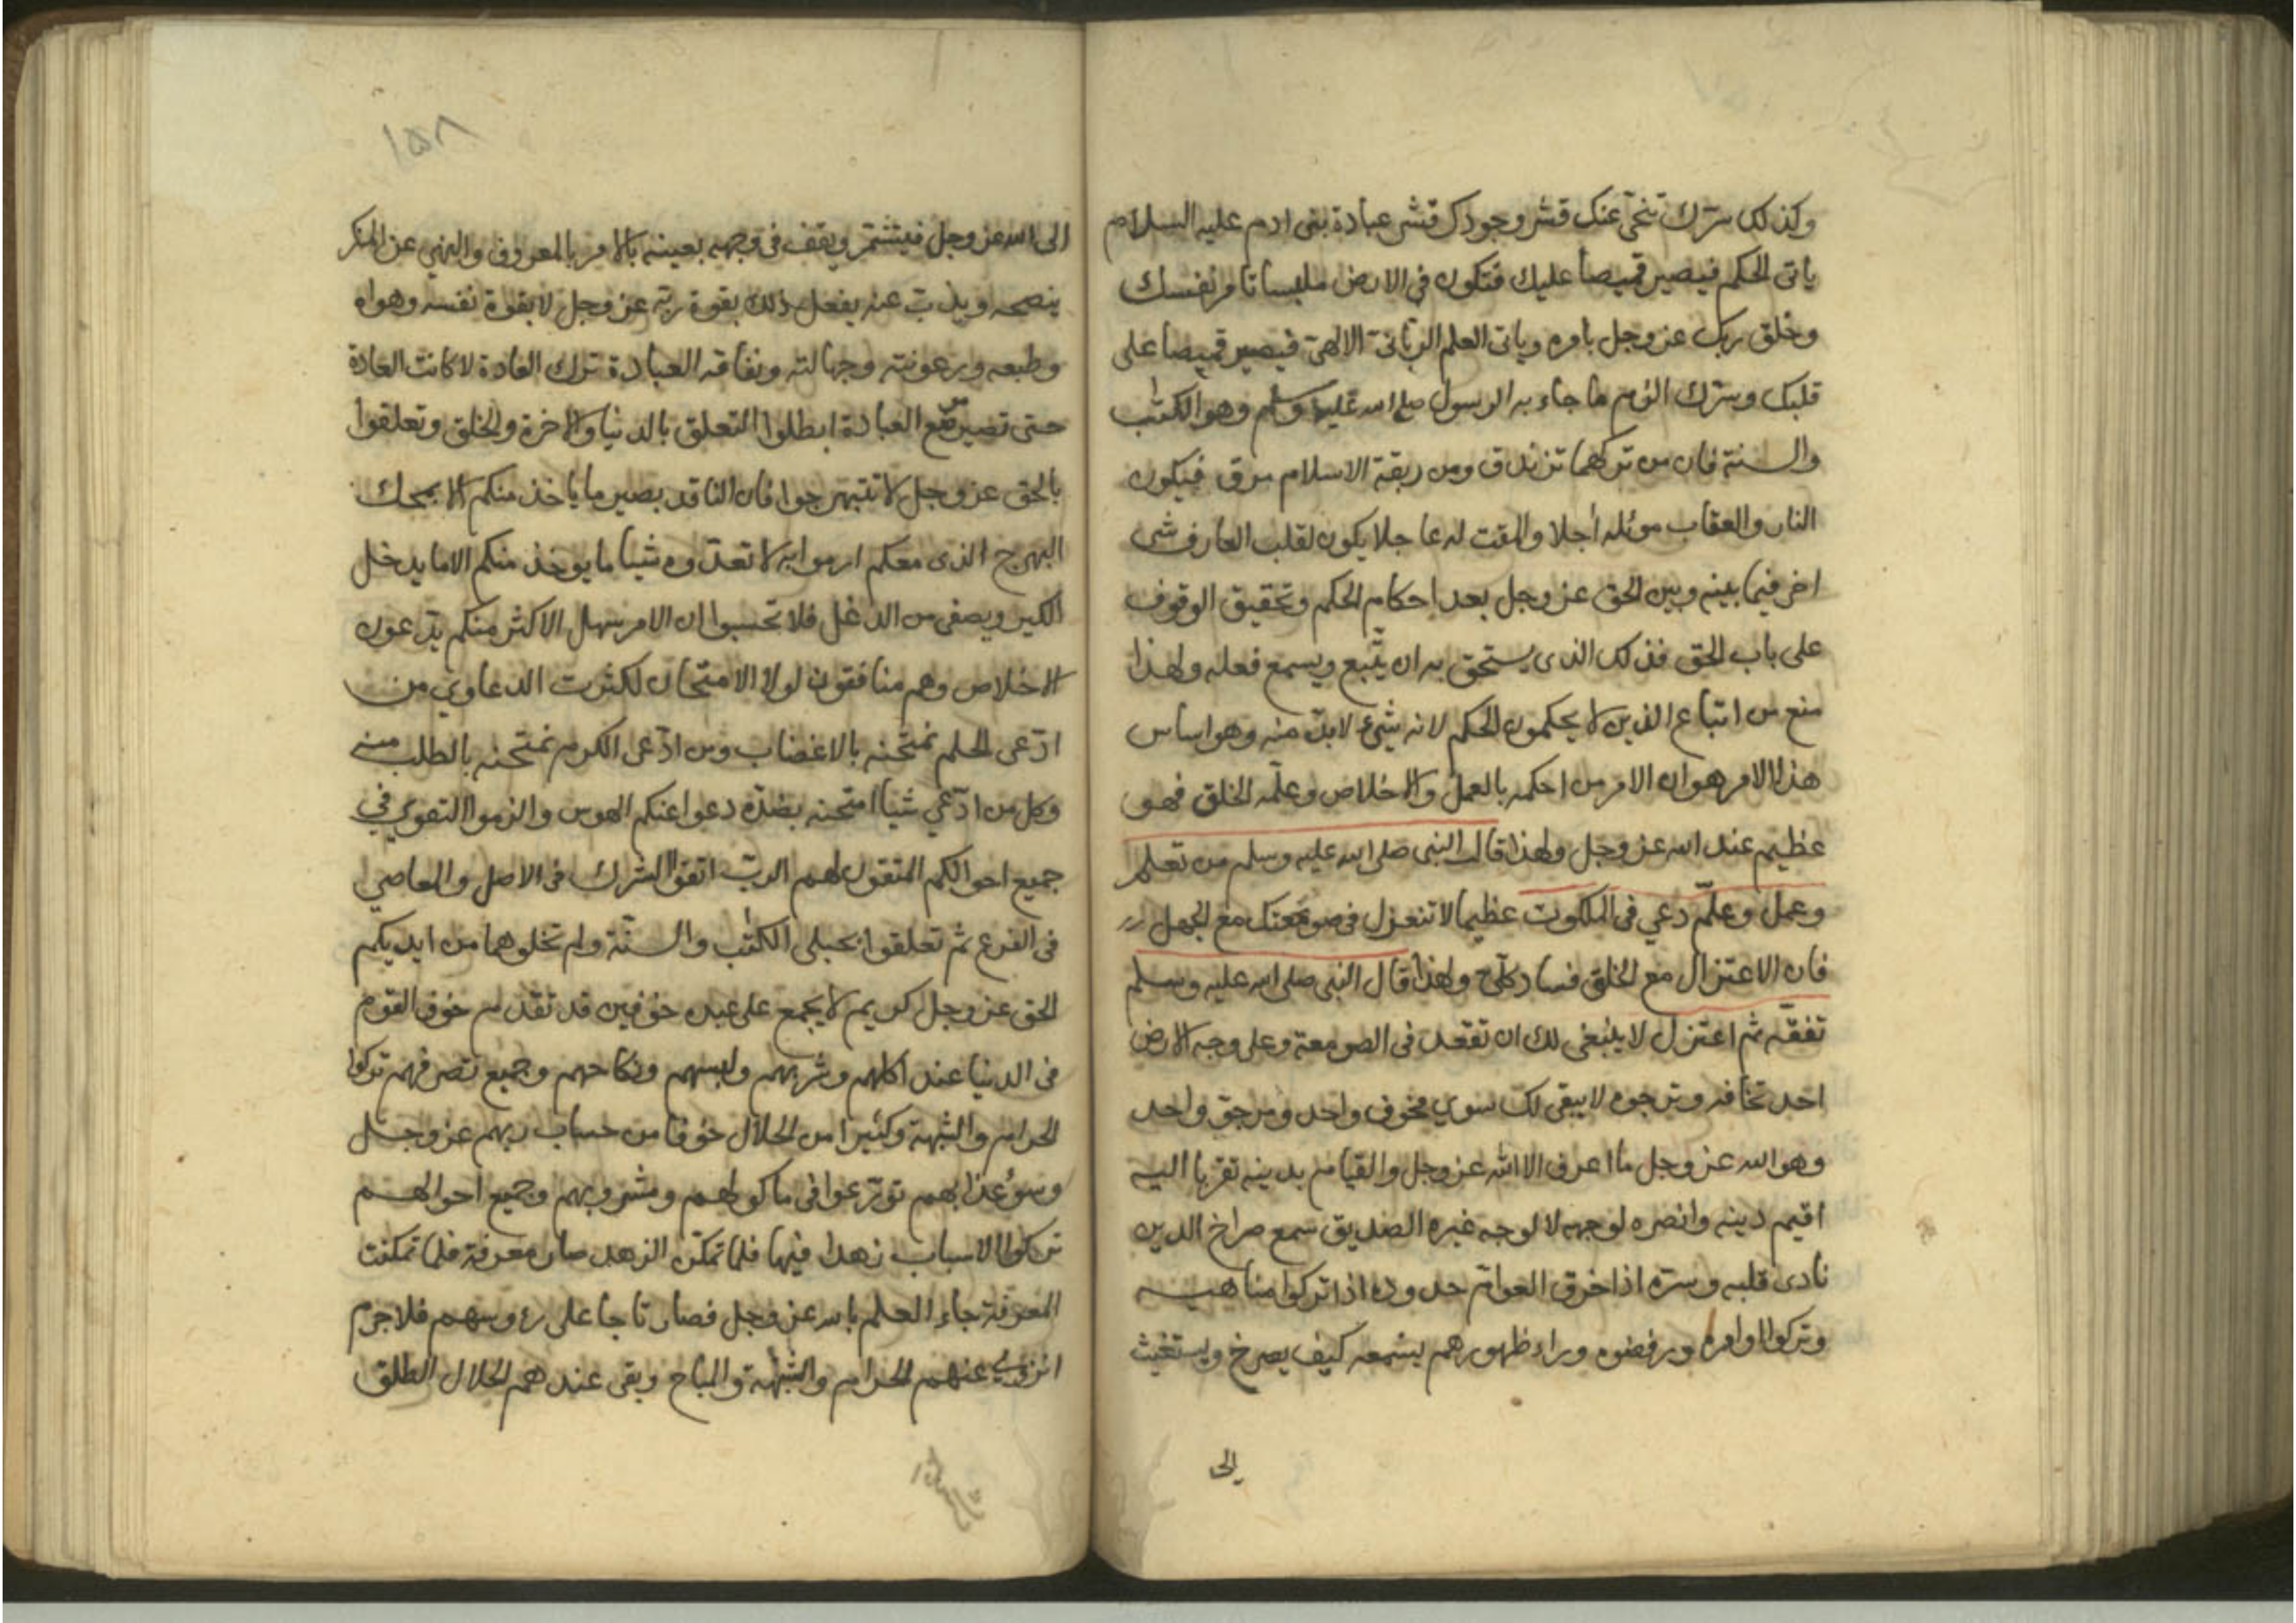 وكذلك سترك تنحي عنك قشر وجودك قشر عبادة بني ادم عليه السلام
ياتي الحكم فيصير قميصا عليك فتكون في الارض ملبسا تامر نفسك
وخلق ربك عز وجل بامره وياتي العلم الرباني الالهي فيصير قميصا على
قلبك وسترك الزم ما جاء به الرسول صلى الله عليه وسلم وهو الكتب
والسنة فان من تركهما تزندق ومن ربقة الاسلام مرق فيكون
النار والعقاب موئله اجلا والمقت له عاجلا يكون لقلب العارف شئ
اخر فيما بينه وبين الحق عز وجل بعد احكام الحكم وتحقيق الوقوف
على باب الحق فذلك الذي يستحق به ان يتبع ويسمع فعله ولهذا
منع من اتباع الذين لا يحكمون الحكم لانه شئ لابد منه وهو اساس
هذا الامر هو ان الامر من احكمه بالعمل والاخلاص وعلمه الخلق فهو
عظيم عند الله عز وجل ولهذا قال النبي صلى الله عليه وسلم من تعلم
وعمل وعلم دعي في الملكوت عظيما لا تنعزل في صومعتك مع الجهل
فان الاعتزال مع الخلق فساد كلي ولهذا قال النبي صلى الله عليه وسلم
تفقه ثم اعتزل لا ينبغي لك ان تقعد في الصومعة وعلى وجه الارض
احد تخافه وترجوه لا يبقى لك سوى مخوف واحد ومرجو واحد
وهو الله عز وجل ما اعرف الا الله عز وجل والقيام بدينه تقربا اليه
اقيم دينه وانصره لوجهه لا لوجه غيره الصديق سمع صراخ الدين
نادى قلبه وسره اذا خرق العوام حدوده اذا تركوا مناهيه
وتركوا اوامره ورفضوه وراء ظهورهم يسمعه كيف يصرخ ويستغيث
الى
١٥٨
الى الله عز وجل فيشتمر ويقف في وجهه بعينه بالامر بالمعروف والنهي عن المنكر
ينصحه ويذب عنه يفعل ذلك بقوة ربه عز وجل لا بقوة نفسه وهواه
وطبعه ورعونته وجهالته ونفاقه العبادة ترك العادة لا كانت العادة
حتى تصير موضع العبادة ابطلوا التعلق بالدنيا والاخرة والخلق وتعلقوا
بالحق عز وجل لا تتبهرجوا فان الناقد بصير ما ياخذ منكم الا بمحك
البهرج الذي معكم ارموا به لا تعدوه شيا ما يوخذ منكم الا ما يدخل
الكير ويصفى من الدغل فلا تحسبوا ان الامر سهل الاكثر منكم يدعون
الاخلاص وهم منافقون لولا الامتحان لكثرت الدعاوي من
ادعى الحلم نمتحنه بالاغضاب ومن ادعى الكرم نمتحنه بالطلب منه
وكل من ادعي شيا امتحنه بضده دعوا عنكم الهوس والزموا التقوي في
جميع احوالكم المتقون لهم الرب اتقوا الشرك في الاصل والمعاصي
في الفرع ثم تعلقوا بحبلي الكتب والسنة ولم تخلوهما من ايديكم
الحق عز وجل كريم لا يجمع على عبده خوفين قد تقدم خوف القوم
في الدنيا عند اكلهم وشربهم ولبسهم ونكاحهم وجميع تصرفهم تركوا
الحرام والشبهة وكثيرا من الحلال خوفا من حساب ربهم عز وجل
وسوء عذابهم تورعوا في ماكولهم ومشروبهم وجميع احوالهم
تركوا الاسباب زهدا فيها فلما تمكن الزهد صار معرفة فلما تمكنت
المعرفة جاء العلم بالله عز وجل فصار تاجا على رؤوسهم فلا جرم
انزوي عنهم الحرام والشبهة والمباح وبقي عندهم الحلال الطلق